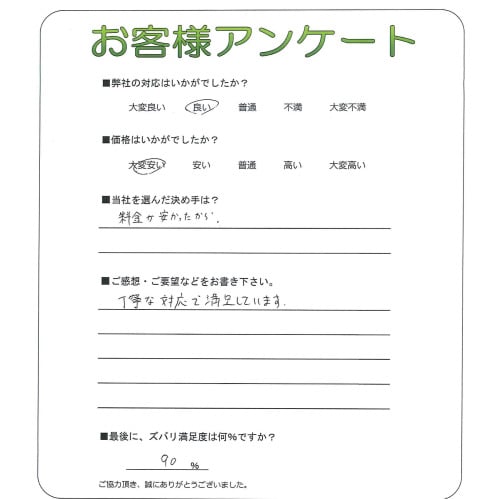 お客様アンケート
■弊社の対応はいかがでしたか?
大変良い 良い 普通 不満 大変不満
■価格はいかがでしたか?
大変安い 安い 普通 高い 大変高い
■当社を選んだ決め手は?
料金が安かったから.
■ご感想・ご要望などをお書き下さい。
丁寧な対応で満足しています.
■最後に、ズバリ満足度は何%ですか?
90 %
ご協力頂き、誠にありがとうございました。